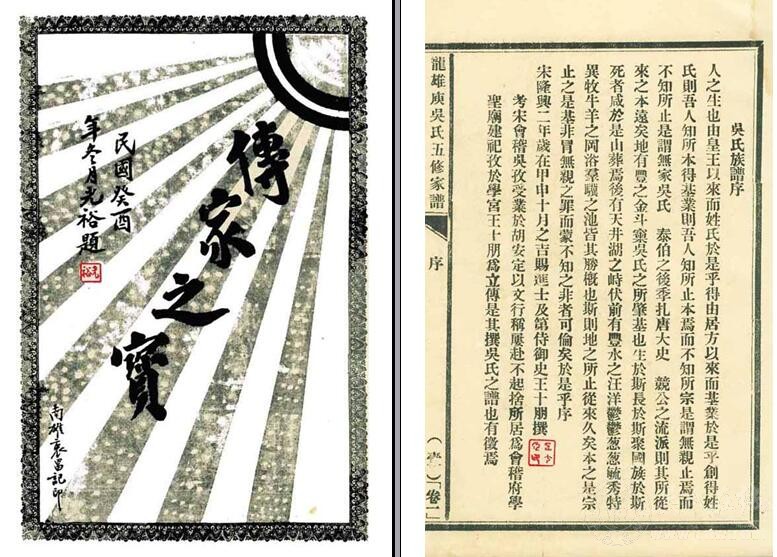 傳家之寶
民國癸酉
年冬月光裕題
南雄昌記印
吳氏族譜序
人之生也由皇王以來而姓氏於是乎得由居方以來而基業於是乎創得姓
氏則吾人知所本得基業則吾人知所止本焉而不知所宗是謂無親止焉而
不知所止是謂無家吳氏　泰伯之後季扎唐大史　競公之流派則其所從
來之本遠矣地有豐之金斗窠吳氏之所肇基也生於斯長於斯聚國族於斯
死者咸於是山葬焉後有天井湖之峙伏前有豐水之汪洋鬱鬱葱葱毓秀特
異牧牛羊之岡浴羣驥之池皆其勝概也斯則地之所止從來久矣本之是宗
止之是基非冒無親之罪而蒙不知之非者可倫矣於是乎序
宋隆興二年歲在甲申十月之吉賜進士及第侍御史王十朋撰
考宋會稽吳孜受業於胡安定以文行稱屢赴不起捨所居爲會稽府學
聖廟建祀孜於學宮王十朋爲立傳是其撰吳氏之譜也有徵焉
龍雄庾吳氏五修家譜
序
（壹）卷一